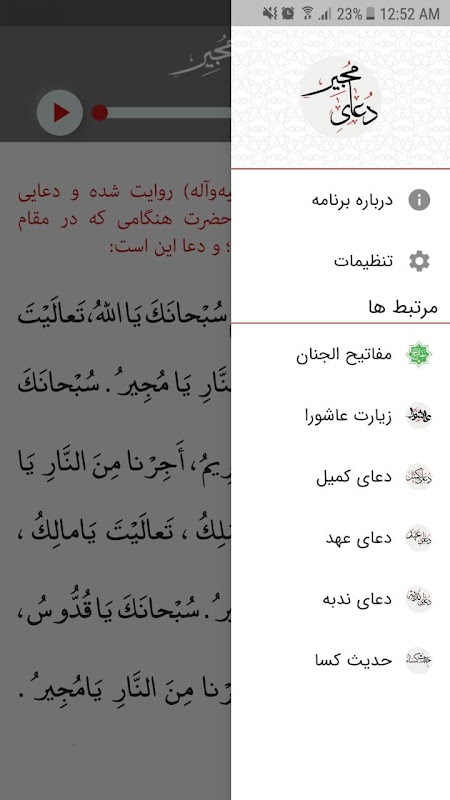 23% 12:52 AM
مُجیر
دُعای مُجیر
درباره برنامه
تنظیمات
مرتبط ها
مفاتیح الجنان
زیارت عاشورا
دعای کمیل
دعای عهد
دعای ندبه
حدیث کسا
یه‌وآله) روایت شده و دعایی
حضرت هنگامی که در مقام
؛ و دعا این است:
سُبْحانَکَ یَا اللهُ، تَعالَیْتَ
النَّارِ یَا مُجیرُ. سُبْحانَکَ
اَجِرْنا مِنَ النَّارِ یَا
تَعالَیْتَ یَامالِکُ،
سُبْحانَکَ یَا قُدُّوسُ،
مِنَ النَّارِ یَامُجیرُ.